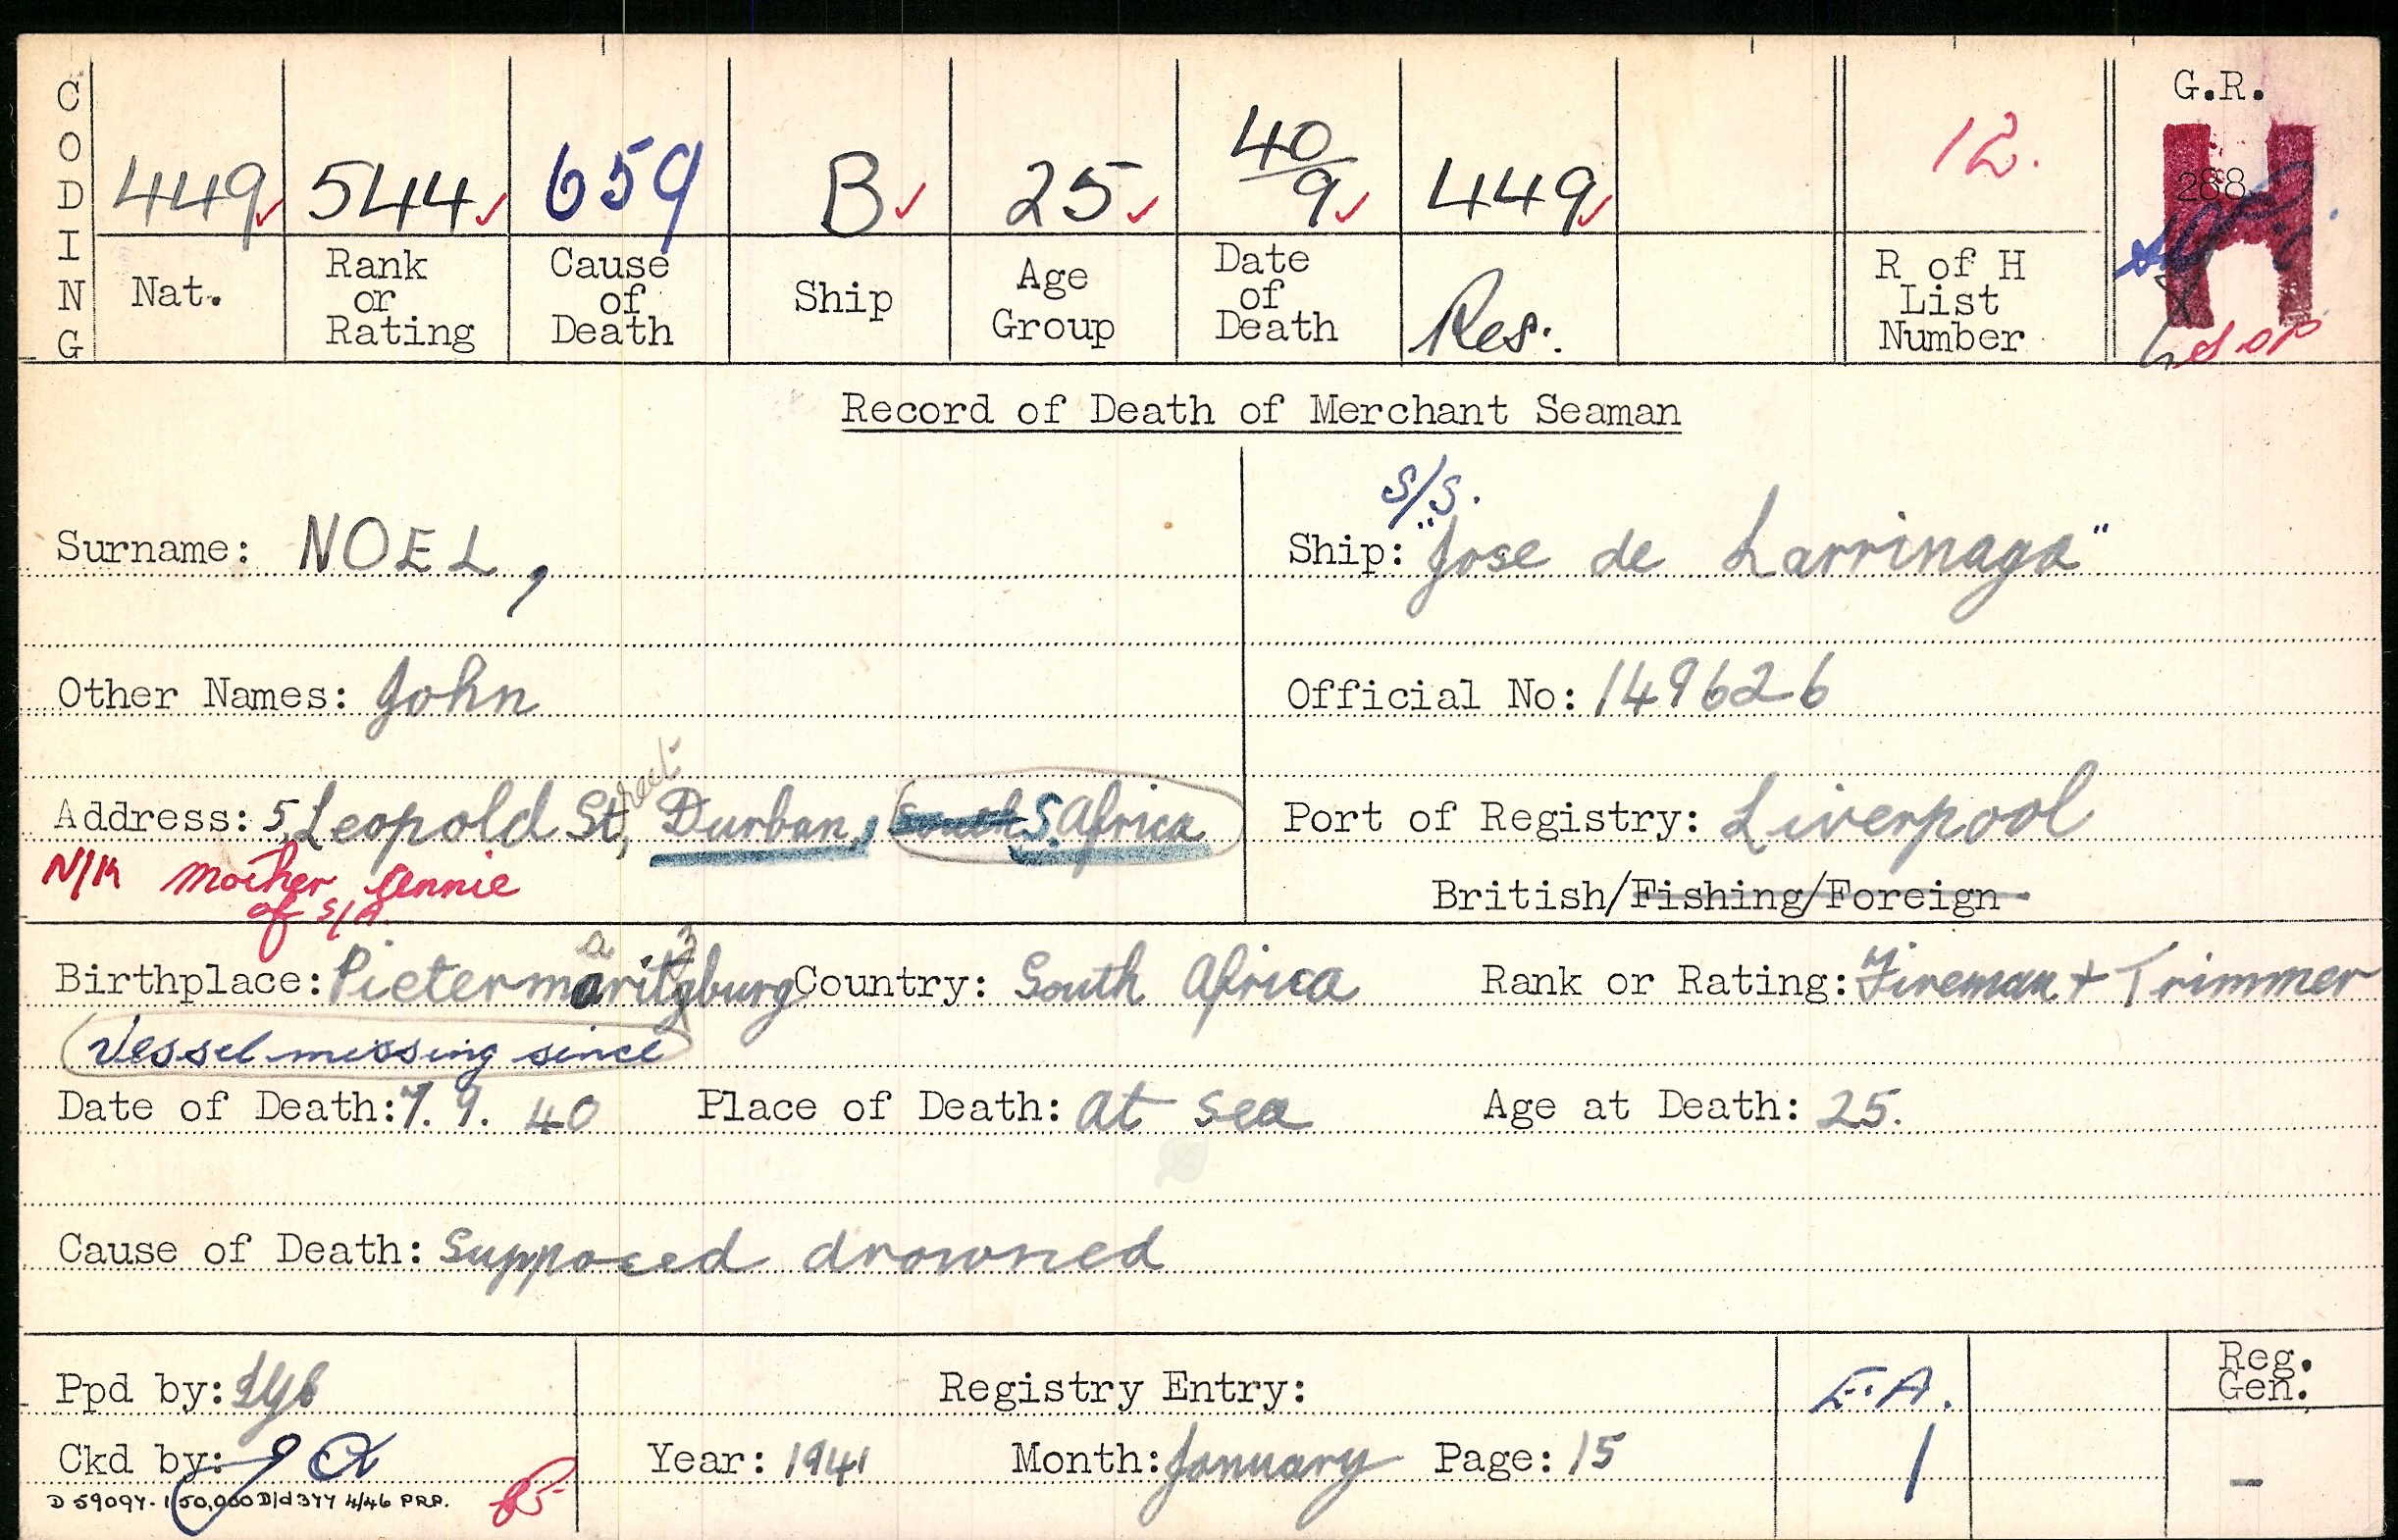 CODING
449 544 659 B 25 40/9 449 12. G.R.
288
Nat. Rank or Rating Cause of Death Ship Age Group Date of Death Res. R of H List Number
H
Record of Death of Merchant Seaman
S/S.
Surname: NOEL, Ship: "Jose de Larrinaga"
Other Names: John Official No: 149626
Address: 5, Leopold St, Durban, South S. Africa Port of Registry: Liverpool
N/K Mother Jennie
of S/A British/Fishing/Foreign
Birthplace: Pietermaritzburg Country: South Africa Rank or Rating: Fireman + Trimmer
Vessel missing since
Date of Death: 7. 9. 40 Place of Death: at sea Age at Death: 25.
Cause of Death: Supposed drowned
Ppd by: Registry Entry: E.A. Reg. Gen.
Ckd by: Year: 1941 Month: January Page: 15 1 -
D 59097-1 50,000 D/d 377 4/46 PRP.